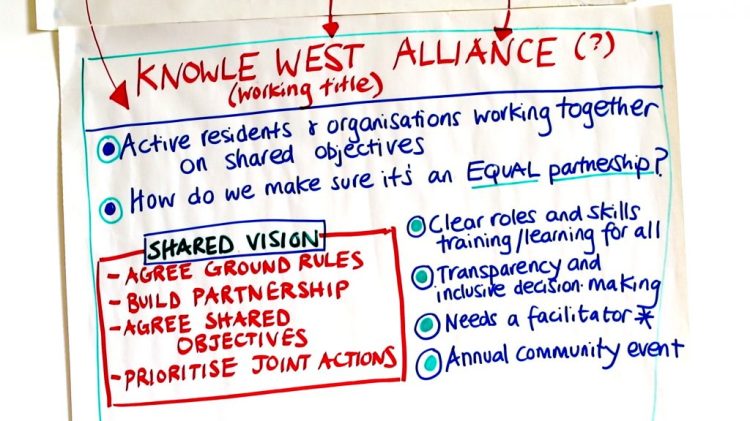 KNOWLE WEST ALLIANCE (?)
(working title)
Active residents & organisations working together
on shared objectives
How do we make sure it's an EQUAL partnership?
SHARED VISION
- AGREE GROUND RULES
- BUILD PARTNERSHIP
- AGREE SHARED
OBJECTIVES
- PRIORITISE JOINT ACTIONS
Clear roles and skills
training/learning for all
Transparency and
inclusive decision-making
Needs a facilitator *
Annual community event